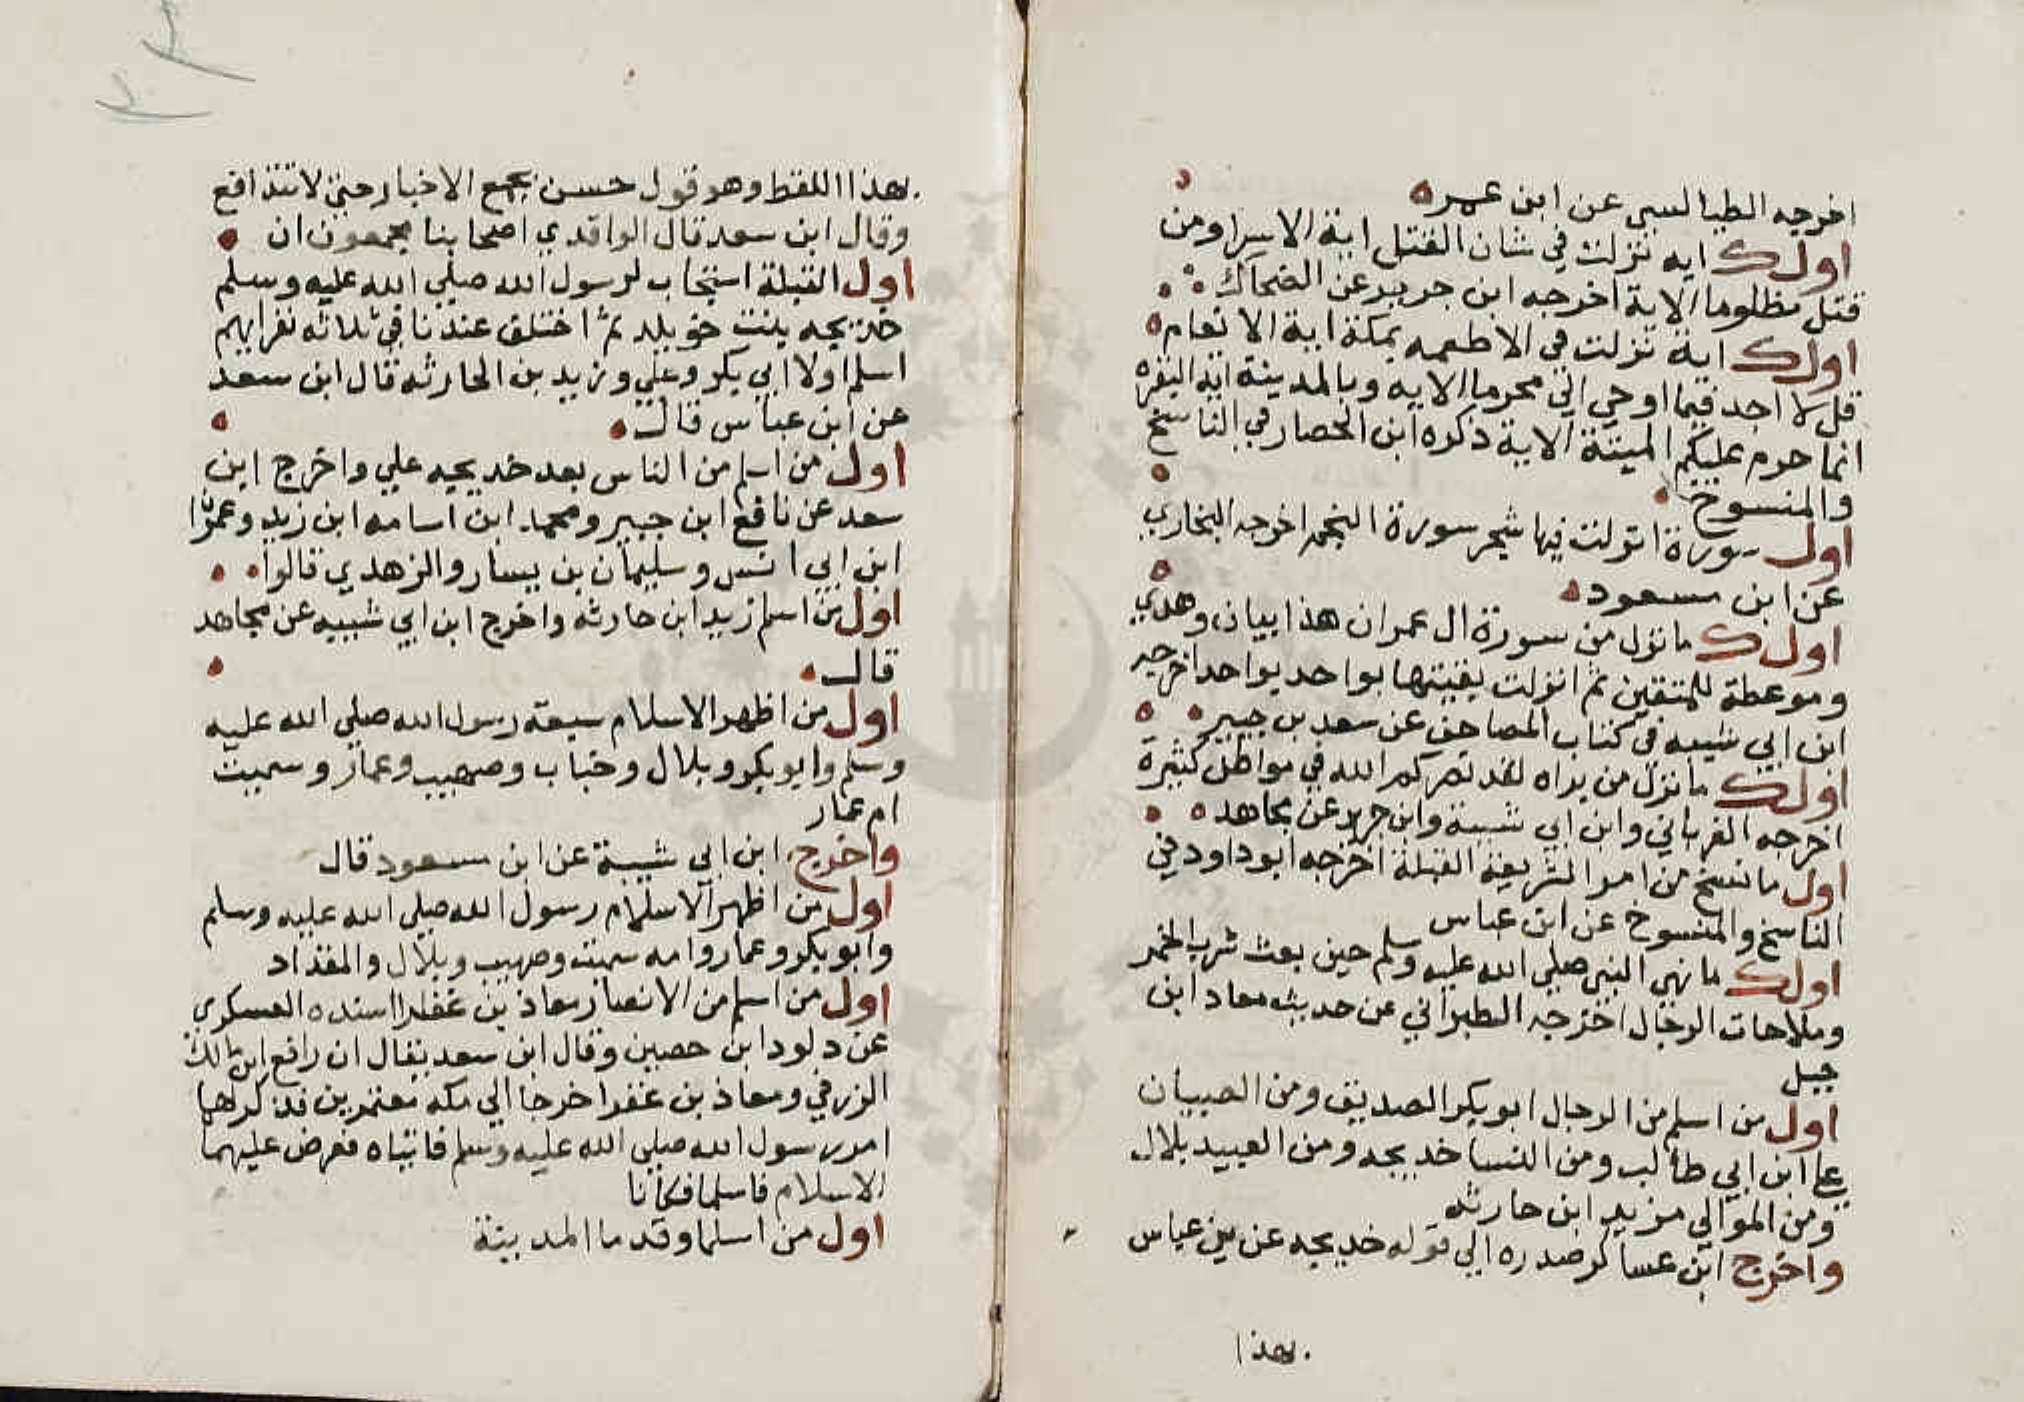 اخرجه الطيالسي عن ابن عمر
اول ك ايه نزلت في شان القتل اية الاسرا ومن
قتل مظلوما الاية اخرجه ابن جرير عن الضحاك
اول ك اية نزلت في الاطعمه بمكة اية الانعام
قل لا اجد فيما اوحي الي محرما الايه وبالمدينة اية البقره
انما حرم عليكم الميتة الاية ذكره ابن الحصار في الناسخ
والمنسوخ
اول سورة انزلت فيها سورة النجم اخرجه البخاري
عن ابن مسعود
اول ك ما نزل من سورة ال عمران هذا بيان وهدي
وموعظة للمتقين ثم انزلت بقيتها بواحد يواحد اخرجه
ابن ابي شيبه في كتاب المصاحف عن سعد بن جبير
اول ك ما نزل من براه لقد نصركم الله في مواطن كثيرة
اخرجه الفريابي وابن ابي شيبة وابن جرير عن مجاهد
اول ما نسخ من امر الشريعة القبلة اخرجه ابو داود في
الناسخ والمنسوخ عن ابن عباس
اول ك ما نهي النبي صلي الله عليه وسلم حين بعث شرب الخمر
وملاحات الرجال اخرجه الطبراني عن حديث معاد ابن
جبل
اول من اسلم من الرجال ابو بكر الصديق ومن الصبيان
علي ابن ابي طالب ومن النسا خديجه ومن العبيد بلال
ومن الموالي زيد ابن حارثه
واخرج ابن عساكر صدره الي قوله خديجه عن بن عباس
بهذا
بهذا اللفظ وهو قول حسن يجمع الاخبار حتي لا تتدافع
وقال ابن سعد قال الواقدي اصحابنا مجمعون ان
اول القبلة استجاب لرسول الله صلي الله عليه وسلم
خديجه بنت خويلد ثم اختلف عندنا في ثلاثه نفر ايهم
اسلم اولا ابي بكر وعلي وزيد بن الحارثه قال ابن سعد
عن ابن عباس قال
اول من اسلم من الناس بعد خديجه علي واخرج ابن
سعد عن نافع ابن جبير ومحمد ابن اسامه ابن زيد وعمران
ابن ابي انس وسليمان بن يسار والزهدي قالوا
اول من اسلم زيد ابن حارثه واخرج ابن ابي شيبيه عن مجاهد
قال
اول من اظهر الاسلام سبعة رسول الله صلي الله عليه
وسلم وابو بكر وبلال وخباب وصهيب وعمار وسميت
ام عمار
واخرج ابن ابي شيبة عن ابن مسعود قال
اول من اظهر الاسلام رسول الله صلي الله عليه وسلم
وابو بكر وعمار وامه سميت وصهيب وبلال والمقداد
اول من اسلم من الانصار معاذ بن عفرا اسنده العسكري
عن داود ابن حصين وقال ابن سعد يقال ان رافع ابن مالك
الزرقي ومعاذ بن عفرا خرجا الي مكه معتمرين فذكر لهما
امر رسول الله صلي الله عليه وسلم فاتياه فعرض عليهما
الاسلام فاسلما فكانا
اول من اسلما وقدما المدينة